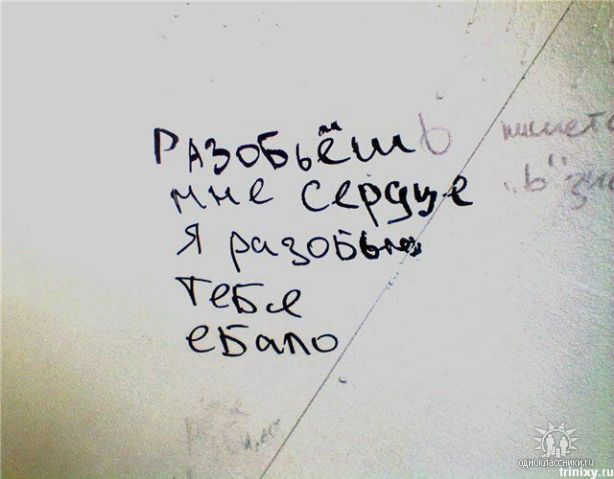 РАЗОБЬЁШЬ
мне сердце
я разобью
тебе
ебало
пишется
"ь"
одноклассники.ru
trinixy.ru